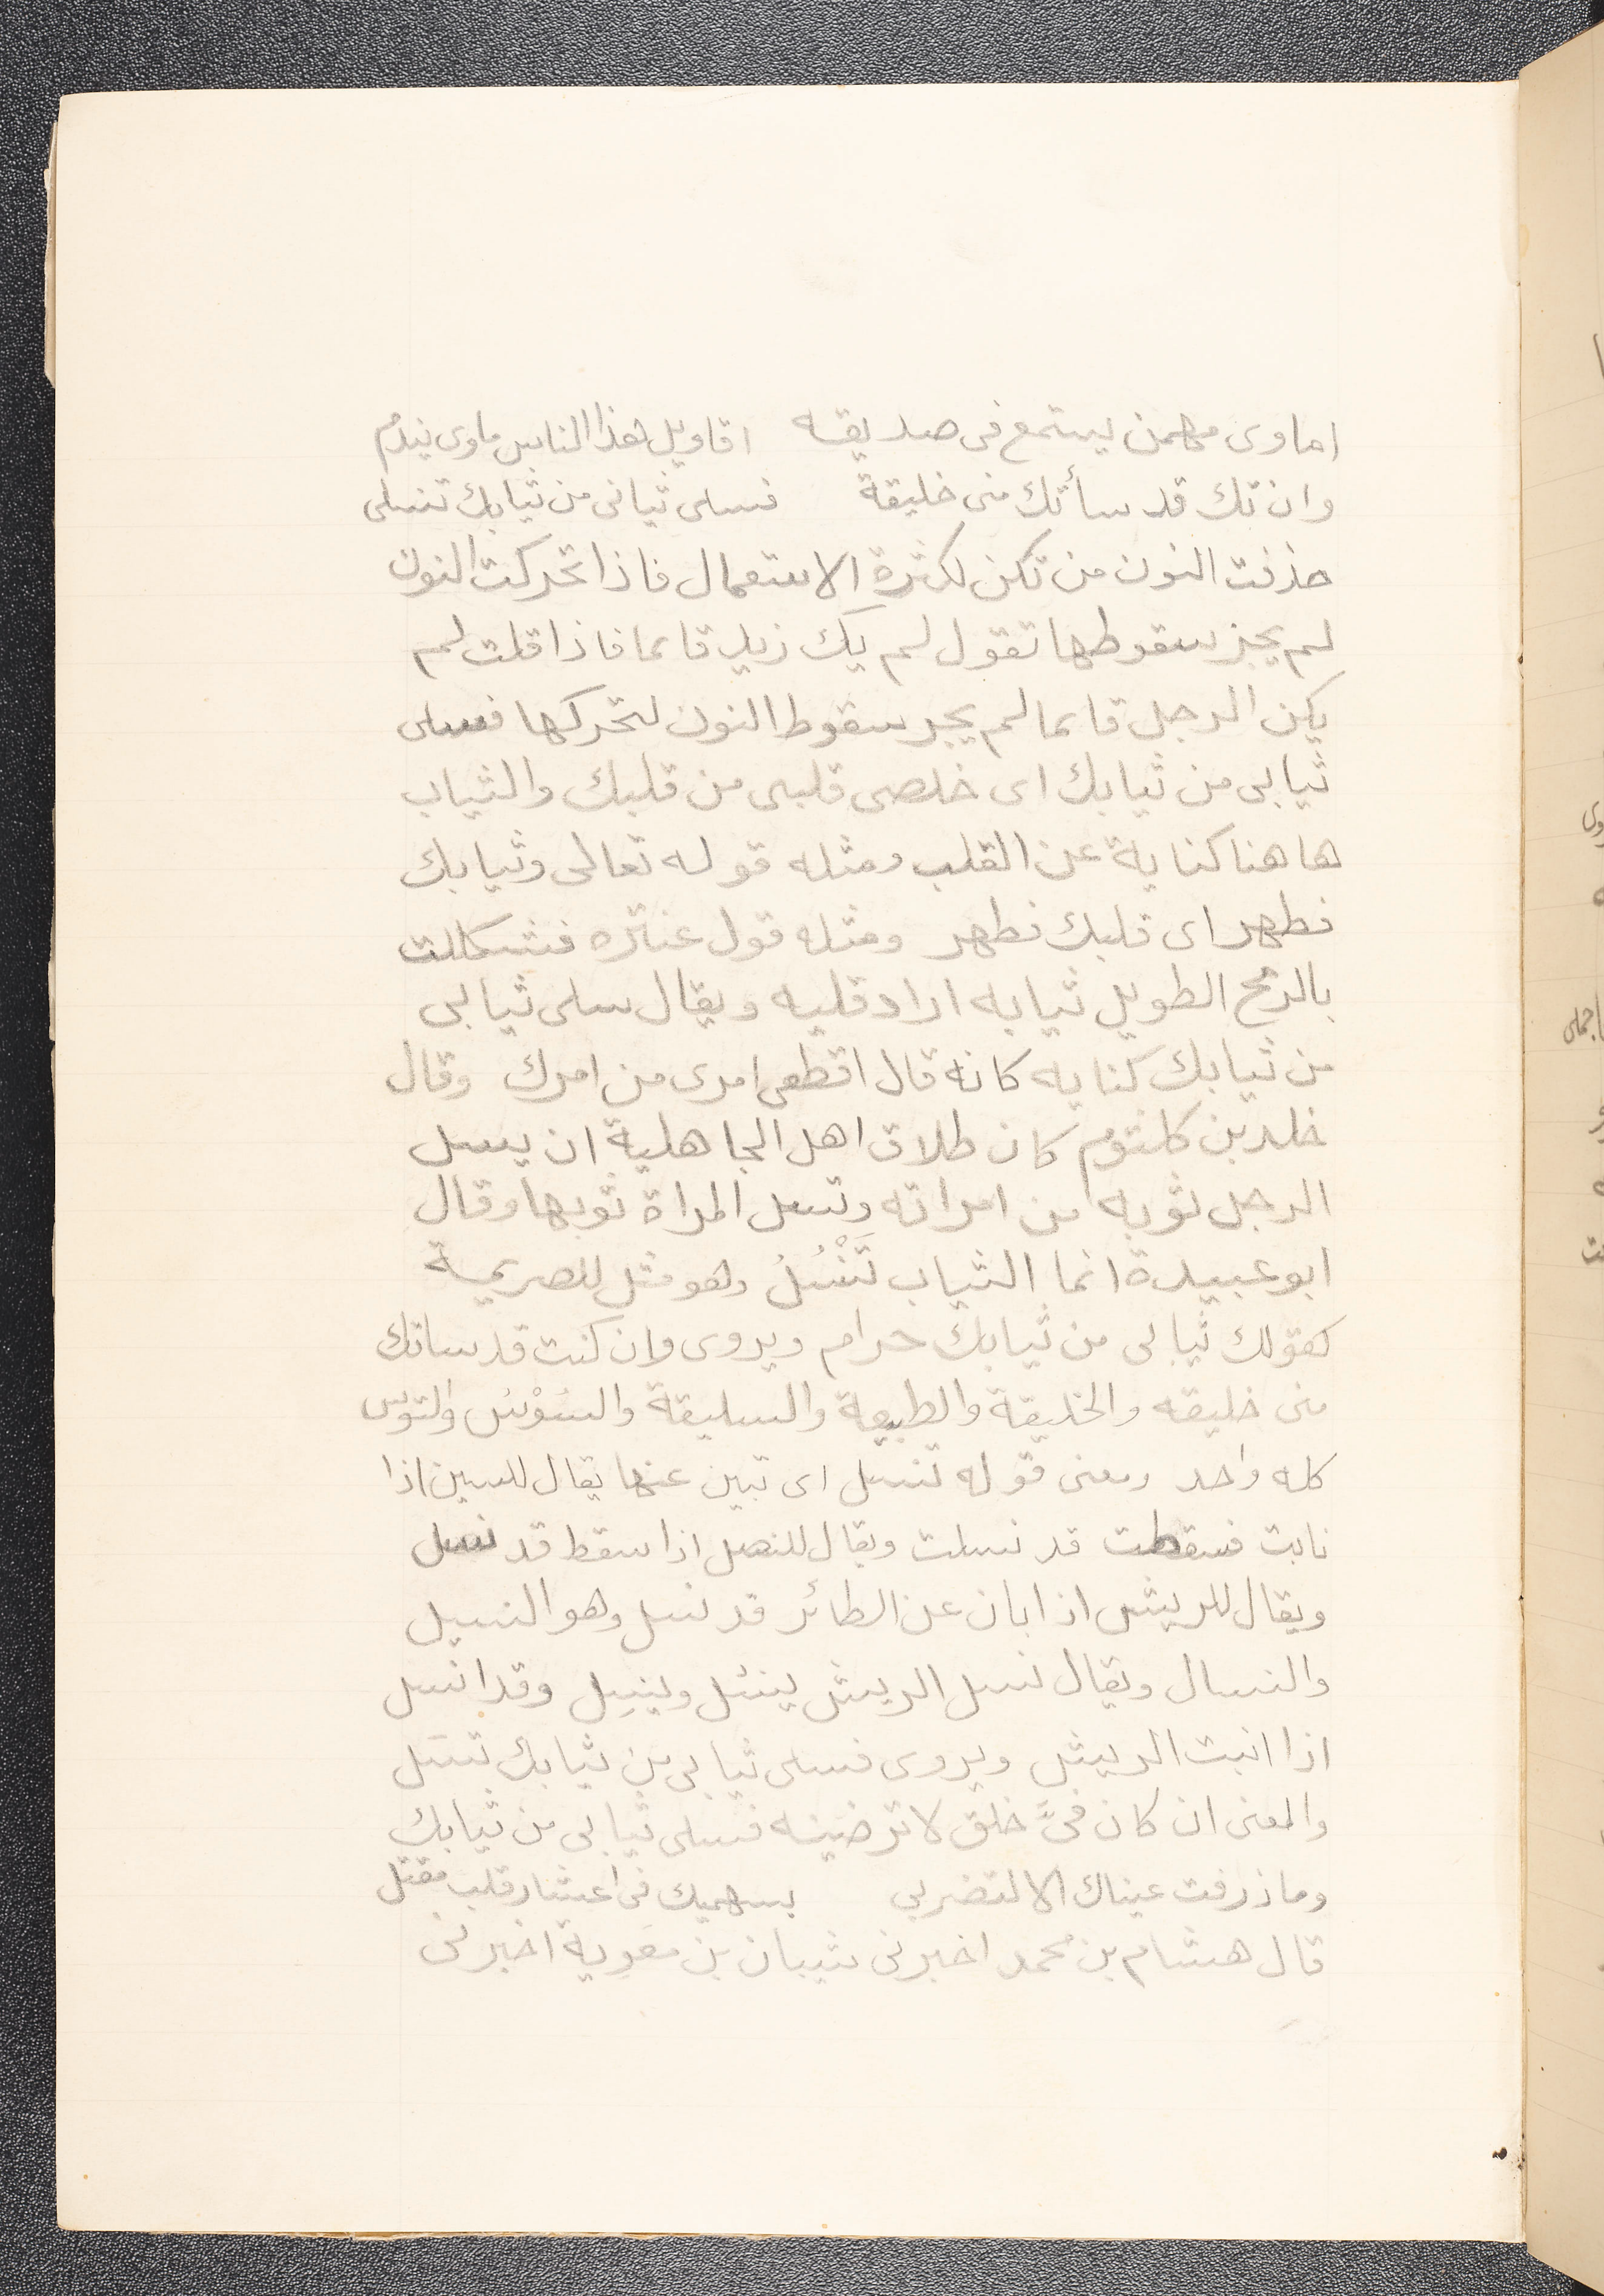 اماوى مهمن يستمع فى صديقه اقاويل هذا الناس ماوى يندم
وان تك قد سأتك منى خليقة فسلى ثيابى من ثيابك تنسلى
حذفت النون من تكن لكثرة الاستعمال فاذا تحركت النون
لم يجز سقوطها تقول لم يك زيد قايما فاذا قلت لم
يكن الرجل قايما لم يجز سقوط النون لتحركها فسلى
ثيابى من ثيابك اى خلصى قلبى من قلبك والثياب
هاهنا كناية عن القلب ومثله قوله تعالى وثيابك
فطهر اى قلبك فطهر ومثله قول عنتره فشككت
بالرمح الطويل ثيابه اراد قلبه ويقال سلى ثيابى
من ثيابك كنايه كانه قال اقطعى امرى من امرك وقال
خلد بن كلثوم كان طلاق اهل الجاهلية ان يسل
الرجل ثوبه من امراته وتسل المراة ثوبها وقال
ابو عبيدة انما الثياب تَنْسُلُ وهو مثل للصريمة
كقولك ثيابى من ثيابك حرام ويروى وان كنت قد ساتك
منى خليقه والخليقة والطبيعة والسليقة والسُوْسُ والتوس
كله واحد ومعنى قوله تنسل اى تبين عنها يقال للسن اذا
نابت فسقطت قد نسلت ويقال للنصل اذا سقط قد نصل
ويقال للريش اذا بان عن الطائر قد نسل وهو النسيل
والنسال ويقال نسل الريش ينسُل وينسِل وقد انسل
اذا انبت الريش ويروى فسلى ثيابى من ثيابك تنسَل
والمعنى ان كان فىَّ خلق لا ترضينه فسلى ثيابى من ثيابك
وما ذرفت عيناك الا لتضربى بسهميك فى اعشار قلب مقتل
قال هشام بن محمد اخبرنى شيبان بن معوية اخبرنى